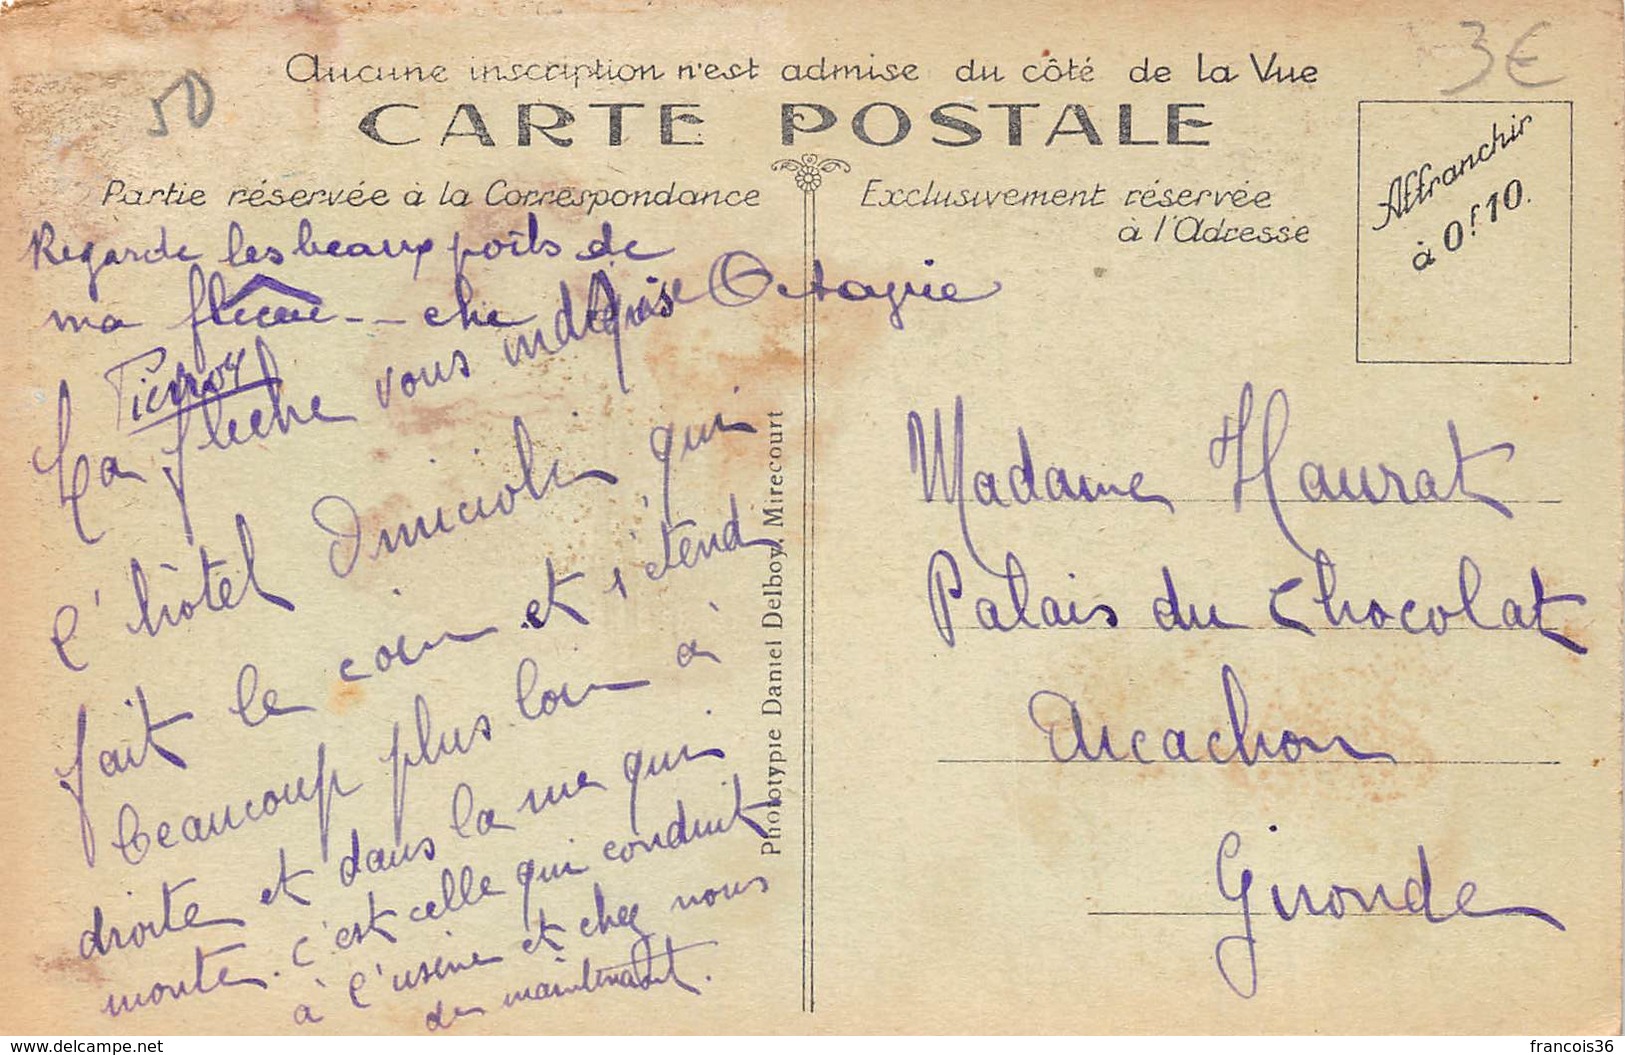 3€
50
Aucune inscription n'est admise du côté de la Vue
CARTE POSTALE
Partie réservée à la Correspondance
Exclusivement réservée
à l'Adresse
Affranchir
à 0f.10.
Regarde les beaux poils de
ma
Pierrot
La fleche vous indique
l'hôtel qui
fait le coin et s'étend
beaucoup plus loin à
droite et dans la rue qui
monte. C'est celle qui conduit
à l'usine et chez nous
de maintenant.
Photoypie Daniel Delboy, Mirecourt
Madame Haurat
Palais du Chocolat
Arcachon
Gironde
delcampe.net
francois36